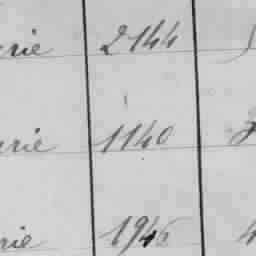 erie 2144
erie 1140
erie 1946